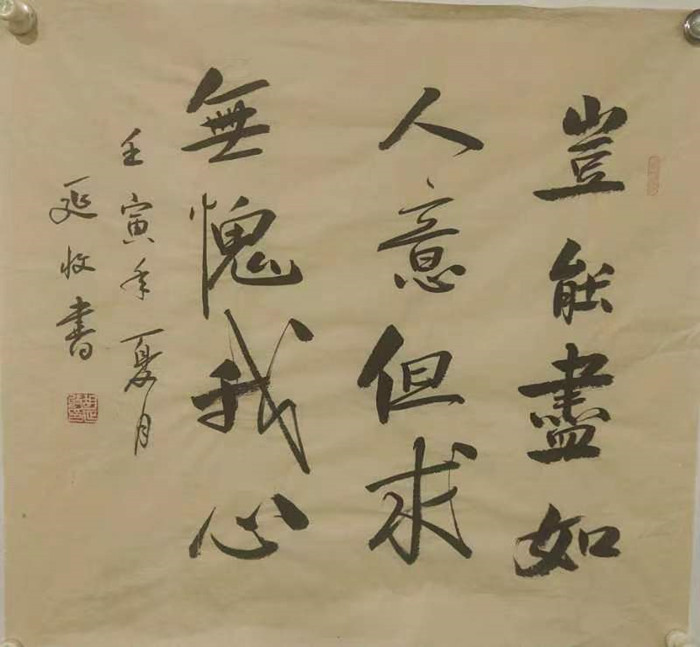 豈能盡如
人意但求
無愧我心
壬寅年夏月
延收書